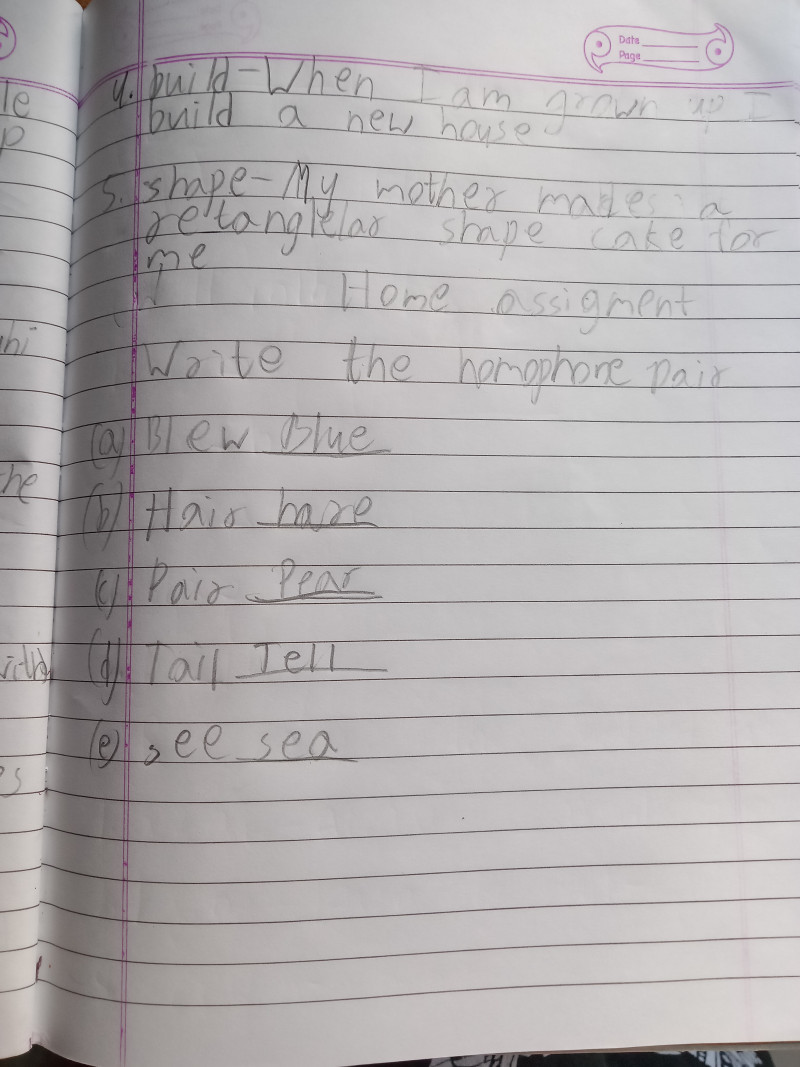 Date
Page
4. build - When I am grown up I
build a new house
5. shape - My mother makes a
retanglelar shape cake for
me
Home assigment
Write the homophone pair
(a) Blew Blue
(b) Hair hare
(c) Pair Pear
(d) Tail Tell
(e) see sea
le
p
hi
he
es